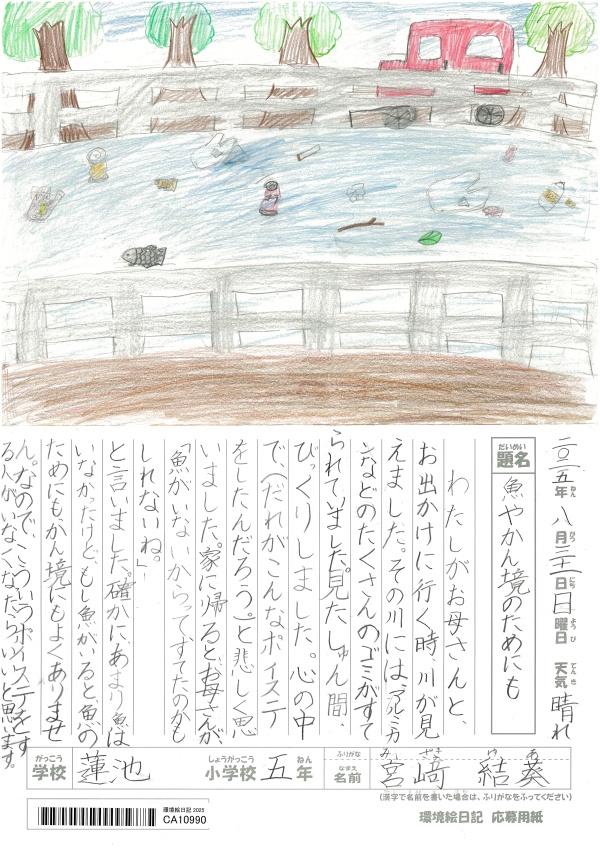 二〇二五年 八月三十一日 日曜日 天気 晴れ
ねん がつ にち ようび てんき
だいめい
題名 魚やかん境のためにも
わたしがお母さんと、
お出かけに行く時、川が見
えました。その川には、アルミカ
ンなどのたくさんのゴミがすて
られていました。見たしゅん間、
びっくりしました。心の中
で、(だれがこんなポイステ
をしたんだろう。)と悲しく思
いました。家に帰ると、お母さんが、
「魚がいないからってすてたのかも
しれないね。」
と言いました。確かにあまり魚は
いなかったけど、もし魚がいると魚の
ためにも、かん境にもよくありませ
ん。なので、こういうポイステをす
る人がいなくなったらいいと思います。
がっこう しょうがっこう ねん ふりがな みや ざき ゆ あ
学校 蓮池 小学校 五年 なまえ 名前 宮﨑 結葵
(漢字で名前を書いた場合は、ふりがなをふってください)
環境絵日記 2025
CA10990
環境絵日記 応募用紙